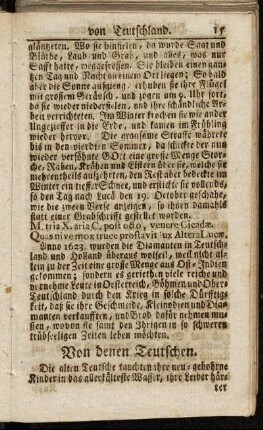 von Teutschland. 15
gläntzeten. Wo sie hinfielen, da wurde Saat und
Blüthe, Laub und Graß, und alles, was nur
Safft hatte, wegzefressen. Sie blieben einen gan-
tzen Tag und Nacht an einem Ort liegen; So bald
aber die Sonne aufgieng, erhuben sie ihre Flügel
mit grossem Geräusch, und zogen um 9. Uhr fort,
da sie wieder niederfielen, und ihre schändliche Ar-
beit verrichteten. Im Winter krochen sie wie ander
Ungeziefer in die Erde, und kamen im Frühling
wieder hervor. Die grausame Straffe währete
bis in den vierdten Sommer, da schickte der nun
wieder versöhnte GOtt eine grosse Menge Stor-
che, Raben, Krähen und Elstern über sie, welche sie
mehrentheils aufzehrten, den Rest aber bedeckte im
Winter ein tieffer Schnee, und erstickte sie vollends,
so den Tag nach Lucä den 19. October geschahe,
wie die zwen Verse anzeigen, so ihnen damahls
statt einer Grabschrifft gestellet worden.
M. tria X. aria C. post octo, venere Cicadæ.
Quas nivemox truce prostravit lux Altera Lucæ.
Anno 1623. wurden die Diamanten in Teutsch-
land und Holland überaus wolfeil, weil nicht al-
lein zu der Zeit eine grosse Menge aus Ost-Indien
gekommen; sondern es geriethen viele reiche und
vornehme Leute in Oesterreich, Böhmen und Ober-
Teutschland durch den Krieg in solche Dürfftig-
keit, daß sie ihr Geschmeide, Kleinodien und Dia-
manten verkaufften, und Brod dafür nehmen mus-
sen, wovon sie samt den Ihrigen in so schweren
trübseeligen Zeiten leben möchten.
Von denen Teutschen.
Die alten Teutsche tauchten ihre neu-gebohrne
Kinder in das allerkälteste Wasser, ihre Leiber här-
ter